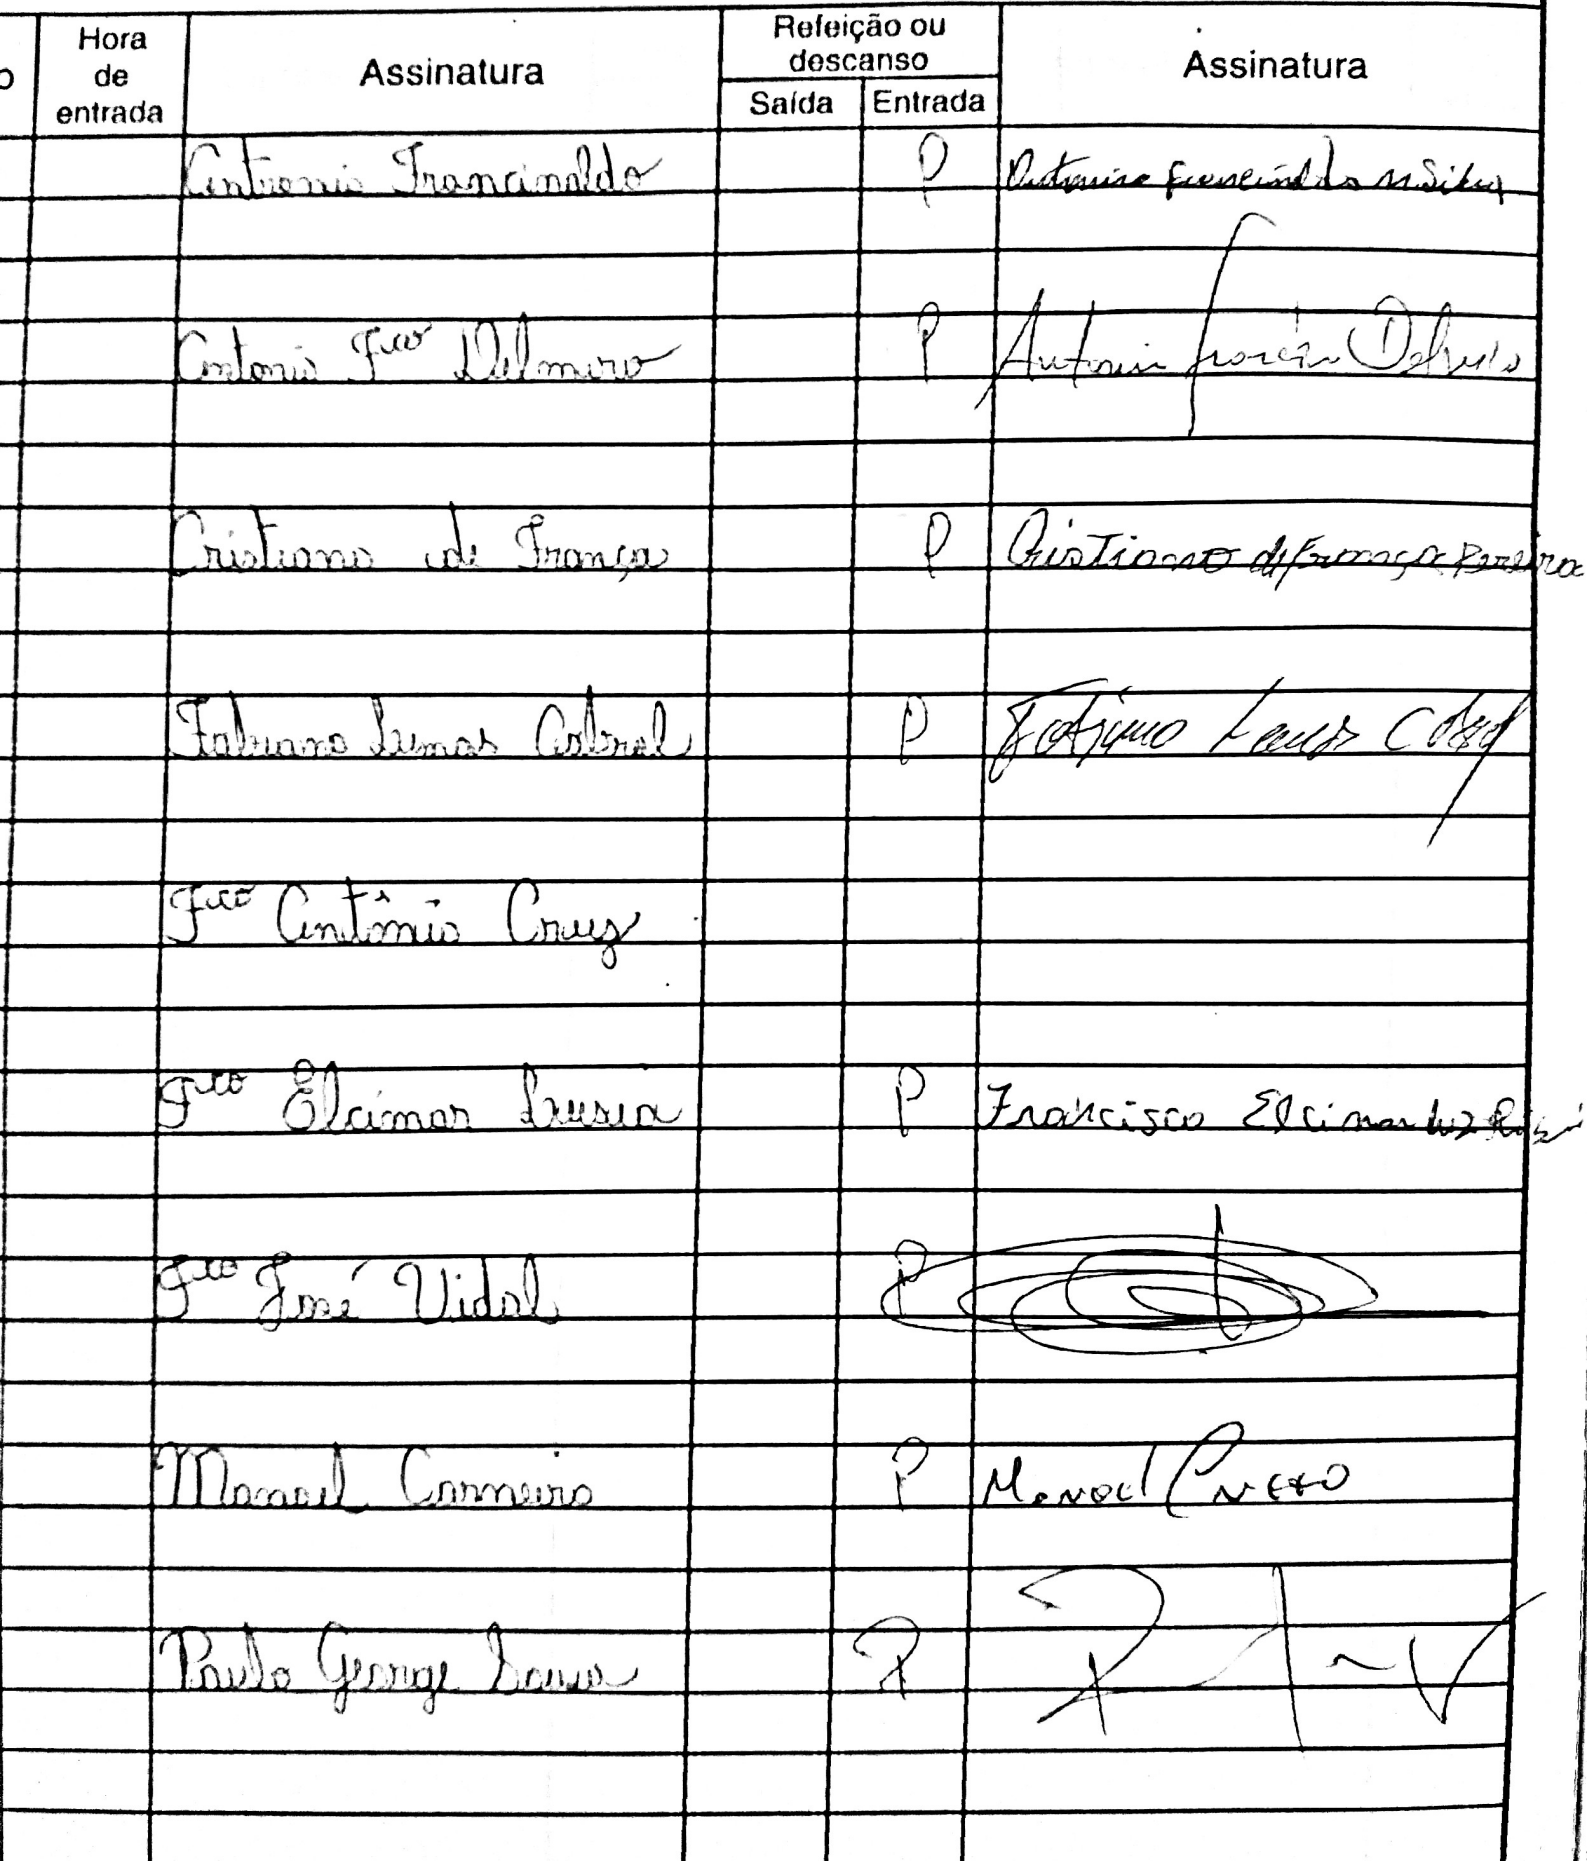 Hora de entrada Assinatura Refeição ou descanso Assinatura
Saída Entrada
Antonio Francinaldo P Antonio Francinaldo
Antonio Fco Delmiro P Antonio Delmiro
Cristiano de França P Cristiano de França Pereira
Fabiano Lemos Cabral P Fabiano Lemos Cabral
Fco Antônio Cruz
Fco Elcimar P Francisco Elcimar
Fco José Vidal P
Manoel Carneiro P Manoel
Paulo George Sousa P